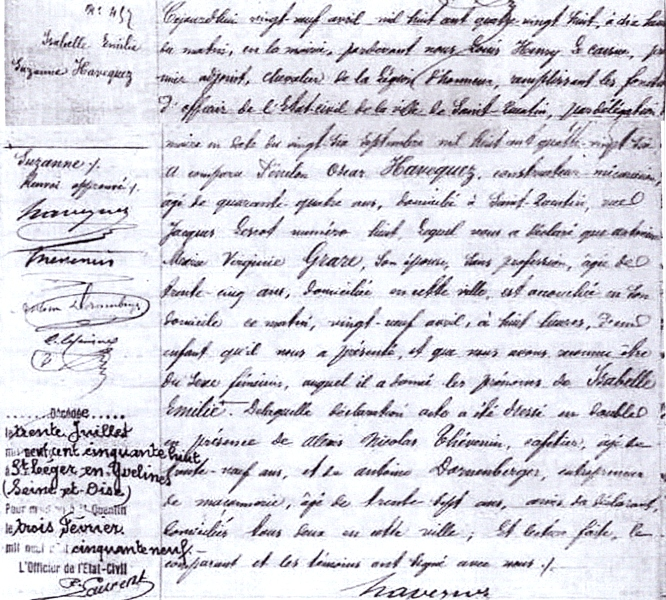 N° 457
Isabelle Emilie
Suzanne Havequez
Suzanne ./.
Renvoi approuvé ./.
Havequez
Thévenin
Décédée
le trente Juillet
mil neuf cent cinquante huit
à St Leger en Yvelines
(Seine et Oise)
Pour mention à St Quentin
le trois Février
mil neuf cent cinquante neuf
L'Officier de l'Etat-Civil
Cejourd'hui vingt-neuf avril mil huit cent quatre vingt huit, à dix heures
du matin, en la mairie, pardevant nous Louis Henry
mier adjoint, chevalier de la Légion d'honneur, remplissant les fonctions
d'officier de l'Etat civil de la ville de Saint-Quentin, par délégation
maire en date du vingt-six septembre mil huit cent quatre-vingt six
a comparu Fénelon Oscar Havequez, constructeur mécanicien,
âgé de quarante quatre ans, domicilié à Saint-Quentin, rue
Jacques Lescot numéro huit, lequel nous a déclaré que antoinette
Marie Virginie Graze, son épouse, sans profession, âgée de
trente-cinq ans, domiciliée en cette ville, est accouchée en son
domicile ce matin, vingt-neuf avril, à huit heures, d'un
enfant qu'il nous a présenté, et que nous avons reconnu être
du sexe féminin, auquel il a donné les prénoms de Isabelle
Emilie ./. De laquelle déclaration acte a été dressé en double
en présence de alexis Nicolas Thévenin, cafetier, âgé de
trente-neuf ans, et de antoine Dannenberger, entrepreneur
de maçonnerie, âgé de trente sept ans, amis du déclarant,
domiciliés tous deux en cette ville ; Et lecture faite, le
comparant et les témoins ont signé avec nous ./.
Havequez